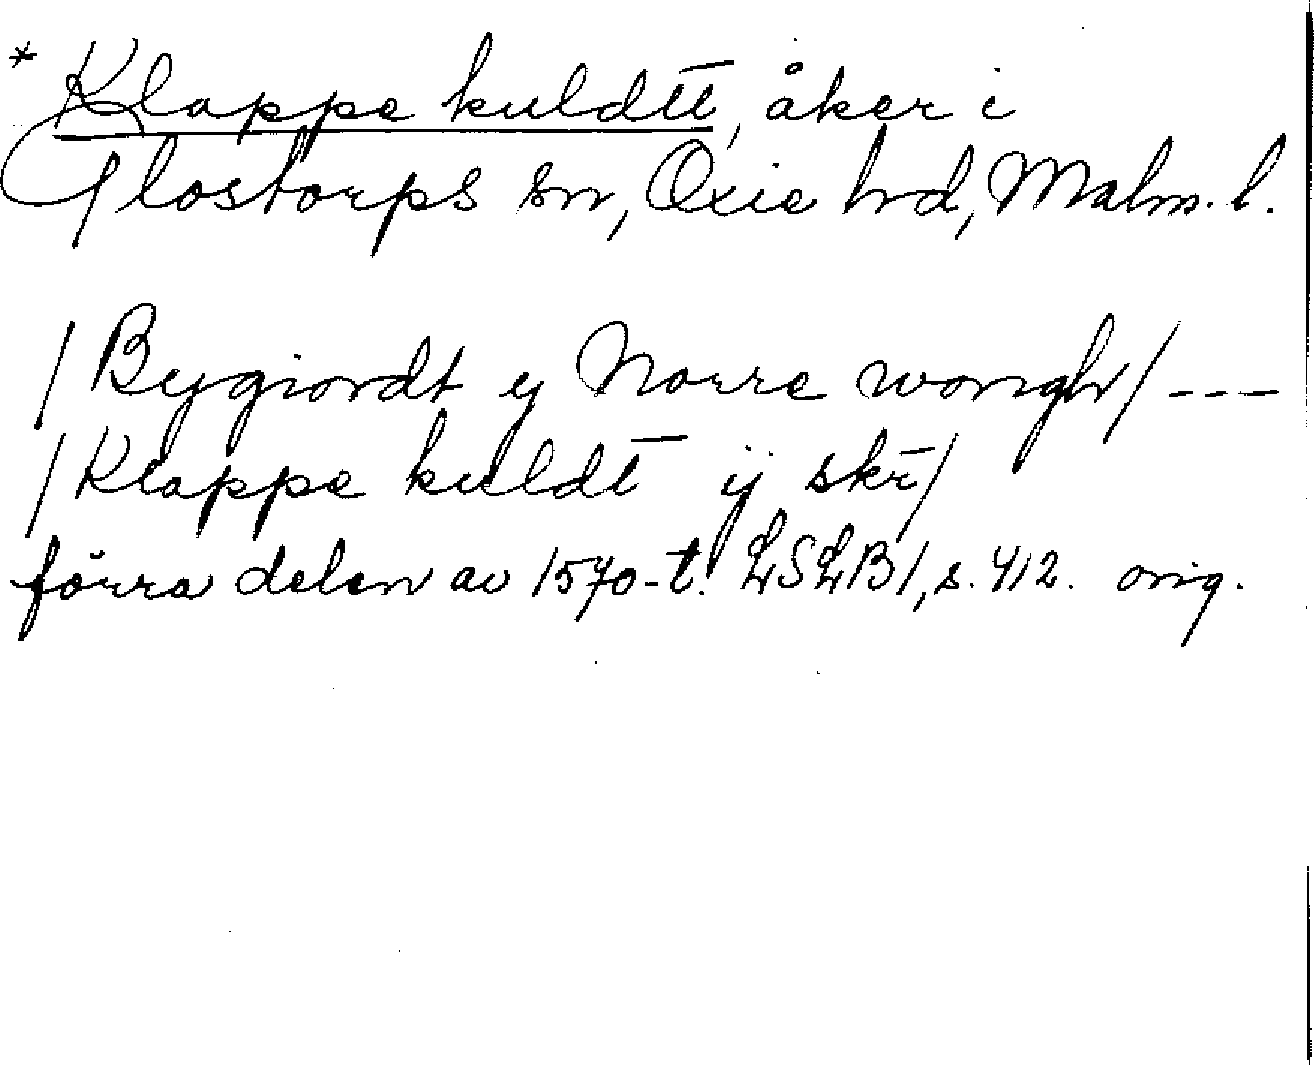 * Klappe kuldtt̄, åker i
Glostorps sn, Oxie hd, Malm. l.
/Bygiordt y Norre wongh/ ---
/Klappe kuldt̄ ij skr̄/
förra delen av 1570-t. LSLB1, s. 412. orig.